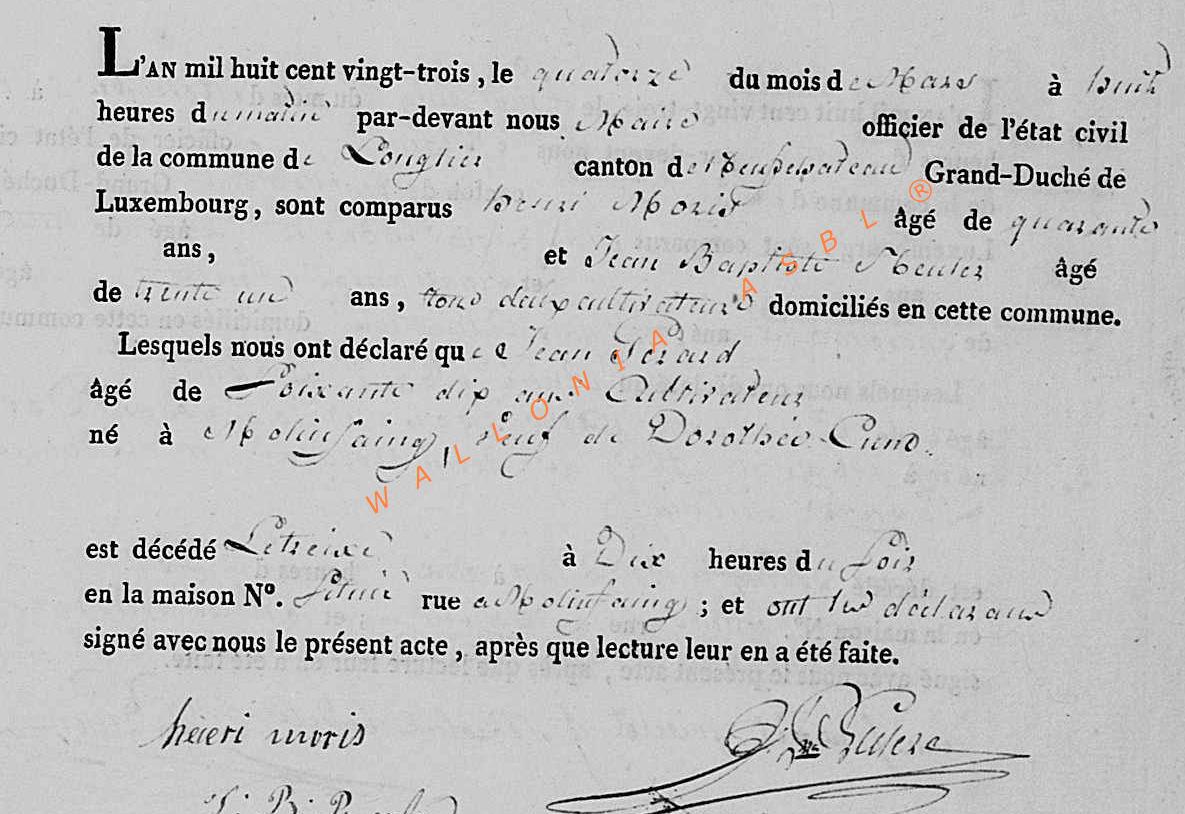 L'AN mil huit cent vingt-trois, le quatorze du mois de Mars à huit
heures du matin par-devant nous Maire officier de l'état civil
de la commune de Longlier canton de Neufchateau Grand-Duché de
Luxembourg, sont comparus henri Moris âgé de quarante
ans, et Jean Baptiste âgé
de trente un ans, tous deux cultivateurs domiciliés en cette commune.
Lesquels nous ont déclaré que Jean Gerard
âgé de Soixante dix ans Cultivateur
né à Molinfaing, veuf de Dorothée Cuno.
est décédé Le treize à Dix heures du Soir
en la maison No. située rue a Molinfaing; et ont les déclarans
signé avec nous le présent acte, après que lecture leur en a été faite.
henri moris
WALLONIA ASBL ®